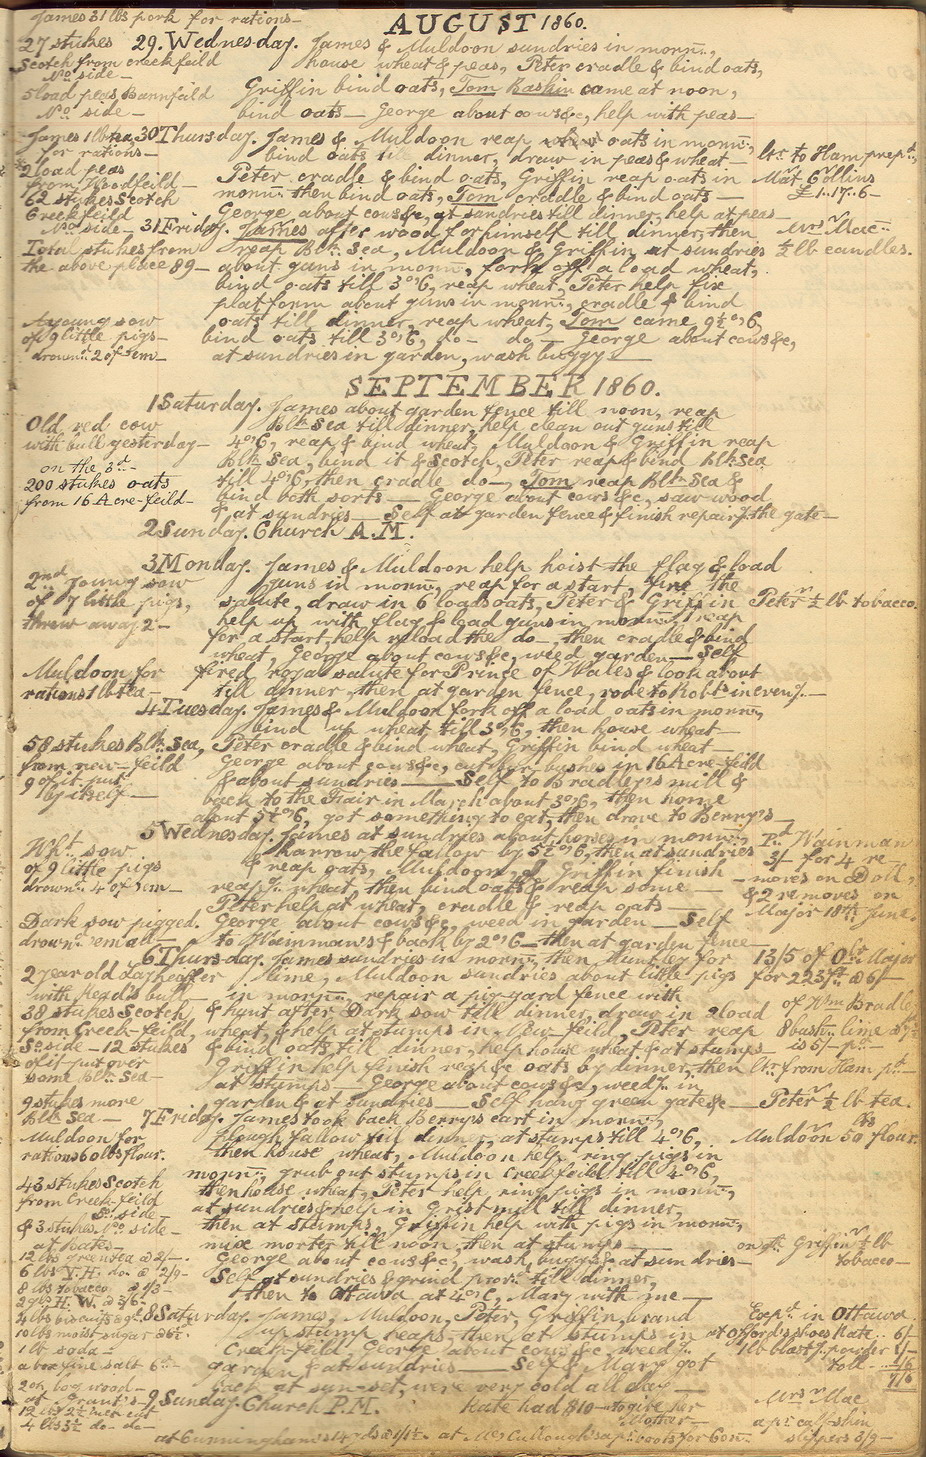 James 31 lbs pork for rations—
AUGUST 1860.
27 stukes
Scotch from creekfeild
No. side—
5 load peas Bannfeild
No. side—
29. Wednesday. James & Muldoon sundries in mornn.,
house wheat & peas, Peter cradle & bind oats,
Griffin bind oats, Tom Baskin came at noon,
bind oats— George about cows &c, help with peas—
James 1 lb tea
for rations—
2 load peas
from Woodfeild—
62 stukes Scotch
Creekfeild
No. side—
30 Thursday. James & Muldoon reap oats in mornn.,
bind oats till dinner, draw in peas & wheat—
Peter cradle & bind oats, Griffin reap oats in
mornn. then bind oats, Tom cradle & bind oats—
George about cows &c, at sundries till dinner, help at peas—
ltr. to Ham prepd.,
Mat Collins
£1.17.6—
Total stukes from
the above place 89—
31 Friday. James after wood for himself till dinner, then
reap Blk. Sea, Muldoon & Griffin at sundries
about guns in mornn., fork off a load wheat,
bind oats till 3 o'c, reap wheat, Peter help fix
platform about guns in mornn., cradle & bind
oats till dinner, reap wheat, Tom came 9½ o'c,
bind oats till 3 o'c, do— do,— George about cows &c,
at sundries in garden, wash buggy—
Mrs. Mac
½ lb candles.
A young sow
of 9 little pigs—
drownd. 2 of 'em—
SEPTEMBER 1860.
Old red cow
with bull yesterday—
on the 3d.—
200 stukes oats
from 16 Acre-feild—
1 Saturday. James about garden fence till noon, reap
Blk. Sea till dinner, help clean out guns till
4 o'c, reap & bind wheat, Muldoon & Griffin reap
Blk. Sea, bind it & Scotch, Peter reap & bind Blk. Sea
till 4 o'c, then cradle do—, Tom reap Blk. Sea &
bind both sorts— George about cows &c, saw wood
& at sundries— Self at garden fence & finish repairg. the gate—
2 Sunday. Church A.M.
2nd young sow
of 7 little pigs,
threw away 2—
Muldoon for
rations 1 lb tea—
3 Monday. James & Muldoon help hoist the flag & load
guns in mornn., reap for a start, fire the
salute, draw in 6 loads oats, Peter & Griffin
help up with flag & load guns in mornn., reap
for a start, help reload the do—, then cradle & bind
wheat, George about cows &c, weed garden— Self
fired royal salute for Prince of Wales & look about
till dinner, then at garden fence, rode to Robt's in eveng.—
Peter ½ lb tobacco.
58 stukes Blk. Sea,
from new-feild
9 of it put
by itself—
4 Tuesday. James & Muldoon fork off a load oats in mornn.,
bind up wheat till 3 o'c, then house wheat—
Peter cradle & bind wheat, Griffin bind wheat—
George about cows &c, cutting bushes in 16 Acre-feild
& about sundries— Self to Bradley's mill &
back to the Fair in March about 3 o'c, then home
about 5½ o'c, got something to eat, then drove to Berry's—
Wht. sow
of 9 little pigs
drownd. 4 of 'em—
Dark sow pigged.
drownd. 'em all—
5 Wednesday. James at sundries about horses in mornn.,
harrow the fallow by 5½ o'c, then at sundries
& reap oats, Muldoon & Griffin finish
reapg. wheat, then bind oats & reap some—
Peter help at wheat, cradle & reap oats—
George about cows &c, weed in garden— Self
to Wainman's & back by 2 o'c— then at garden fence—
Pd. Wainman
3/- for 4 re-
-moves on Doll,
& 2 removes on
Major 18th June.
2 year old Lay heaffer
with Mead's bull—
38 stukes Scotch
from Creek-feild,
So. side— 12 stukes
of it put over
some Blk. Sea—
9 stukes more
Blk Sea—
6 Thursday. James sundries in mornn., then Huntley for
lime, Muldoon sundries about little pigs
in mornn., repair a pig-yard fence with
& hunt after Dark sow till dinner, draw in 2 load
wheat, & help at stumps in New-feild, Peter reap
& bind oats till dinner, help house wheat & at stumps—
Griffin help finish reapg. oats by dinner, then
at stumps— George about cows &c, weedg. in
garden & at sundries— Self hang green gate &c—
13/5 of Obr. Major
for 223 ft. @ 6/—
of Wm Bradley
8 bush. lime @ 7½
is 5/- pd.—
ltr. from Ham pd.—
Peter ½ lb tea.
lbs
Muldoon 50 flour.
Muldoon for
rations 60 lbs flour.
43 stukes Scotch
from Creek-feild
So. side—
& 3 stukes No. side—
7 Friday. James took back Berry's cart in mornn.,
plough fallow till dinner, at stumps till 4 o'c,
then house wheat, Muldoon help ring pigs in
mornn., grub out stumps in Creekfeild till 4 o'c,
then house wheat, Peter help ring pigs in mornn.,
at sundries & help in Grist mill till dinner,
then at stumps, Griffin help with pigs in mornn.,
mix morter till noon, then at stumps—
George about cows &c, wash buggy & at sundries—
Self at sundries & grind prov. till dinner,
then to Ottawa at 4 o'c, Mary with me—
Griffin ½ lb
tobacco—
at Kates—
12 lbs green tea @ 2/—
6 lbs Y.H. do— @ 2/9—
8 lbs tobacco @ 1/3—
2 gls H.W. @ 3/6—
4 lbs biscuits
10 lbs moist sugar @ 6½.
1 lb soda—
a box fine salt 6d.—
2 oz. log wood—
at Grant's—
12 lbs 2½ inch cut
4 lbs 3½ do— do—
8 Saturday. James, Muldoon, Peter, Griffin, brand
up stump heaps, then at stumps in
Creek-feild, George about cows &c, weedg.
garden, & at sundries— Self & Mary got
back at sun-set, were very cold all day—
Expd. in Ottawa
at Offord's shoes Kate.. 6/—
1 lb blastg. powder 1/—
toll... /6
7/6
9 Sunday. Church P.M.
Kate had $10— to give her
Mother—
Mrs. Mac
a pr. calf-skin
slippers 3/9—
at Cunningham's 14 yds @ 1/1½— at McCullough's a pr. boots for Geo.—